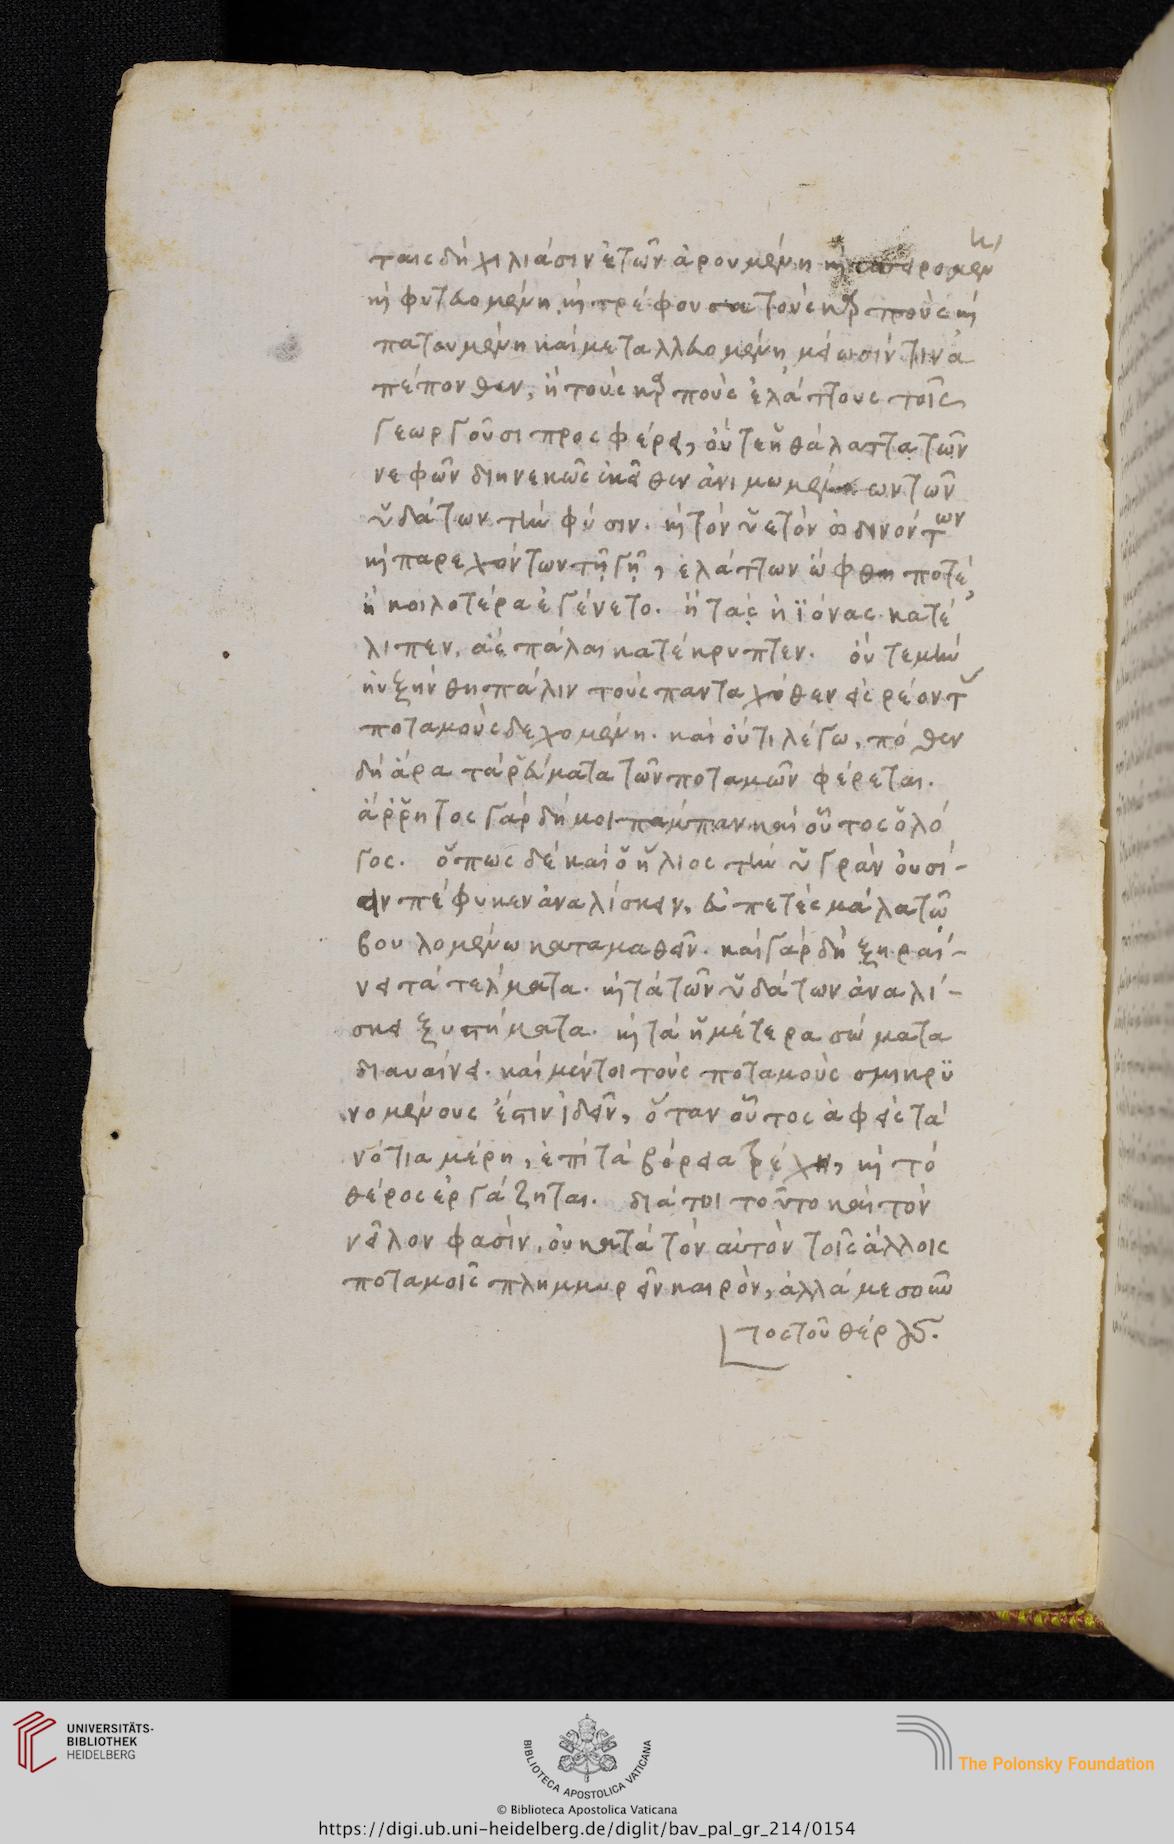 ταις δὴ χιλιάσιν ἐτῶν ἀρουμένη κὶ σπειρομέν η
κὶ φυτευομένη κὶ τρέφουσα τοὺς καρποὺς κὶ
πατουμένη καὶ μεταλλευομένη μείωσίν τινα
πέπονθεν, ἢ τοὺς καρποὺς ἐλάττους τοῖς
γεωργοῦσι προσφέρει, οὔτε ἡ θάλαττα τῶν
νεφῶν διηνεκῶς ἐκεῖθεν ἀνιμωμένων τῶν
ὑδάτων τὴν φύσιν. κὶ τὸν ὑετὸν ὠδινόντων
κὶ παρεχόντων τῇ γῇ, ἐλάττων ὤφθη ποτέ,
ἢ κοιλοτέρα ἐγένετο. ἢ τὰς ἠϊόνας κατέ
λιπεν, ἃς πάλαι κατέκρυπτεν. οὔτε μὴν
ηὐξήνθη πάλιν τοὺς πανταχόθεν εἰσρέοντας
ποταμοὺς δεχομένη. καὶ οὔτι λέγω, πόθεν
δὴ ἄρα τὰ ῥεύματα τῶν ποταμῶν φέρεται.
ἄῤῥητος γὰρ δή μοι πάμπαν καὶ οὗτος ὁ λό
γος. ὅπως δὲ καὶ ὁ ἥλιος τὴν ὑγρὰν οὐσί-
αν πέφυκεν ἀναλίσκειν, εὐπετὲς μάλα τῷ
βουλομένω καταμαθεῖν. καὶ γὰρ δὴ ξηραί-
νει τὰ τέλματα. κὶ τὰ τῶν ὑδάτων ἀναλί-
σκει ξυστήματα. κὶ τὰ ἡμέτερα σώματα
διαυαίνει. καὶ μέντοι τοὺς ποταμοὺς σμικρυ
νομένους ἔστιν ἰδεῖν, ὅταν οὗτος ἀφεὶς τὰ
νότια μέρη, ἐπὶ τὰ βόρεια τρέχη, κὶ τὸ
θέρος ἐργάζηται. διά τοι τοῦτο καὶ τὸν
νεῖλον φασὶν, οὐ κατὰ τὸν αὐτὸν τοῖς ἄλλοις
ποταμοῖς πλημμυρεῖν καιρὸν, ἀλλὰ μεσοῦν
τος τοῦ θέρους.
UNIVERSITÄTS-
BIBLIOTHEK
HEIDELBERG
BIBLIOTECA APOSTOLICA VATICANA
The Polonsky Foundation
© Biblioteca Apostolica Vaticana
https://digi.ub.uni-heidelberg.de/diglit/bav_pal_gr_214/0154